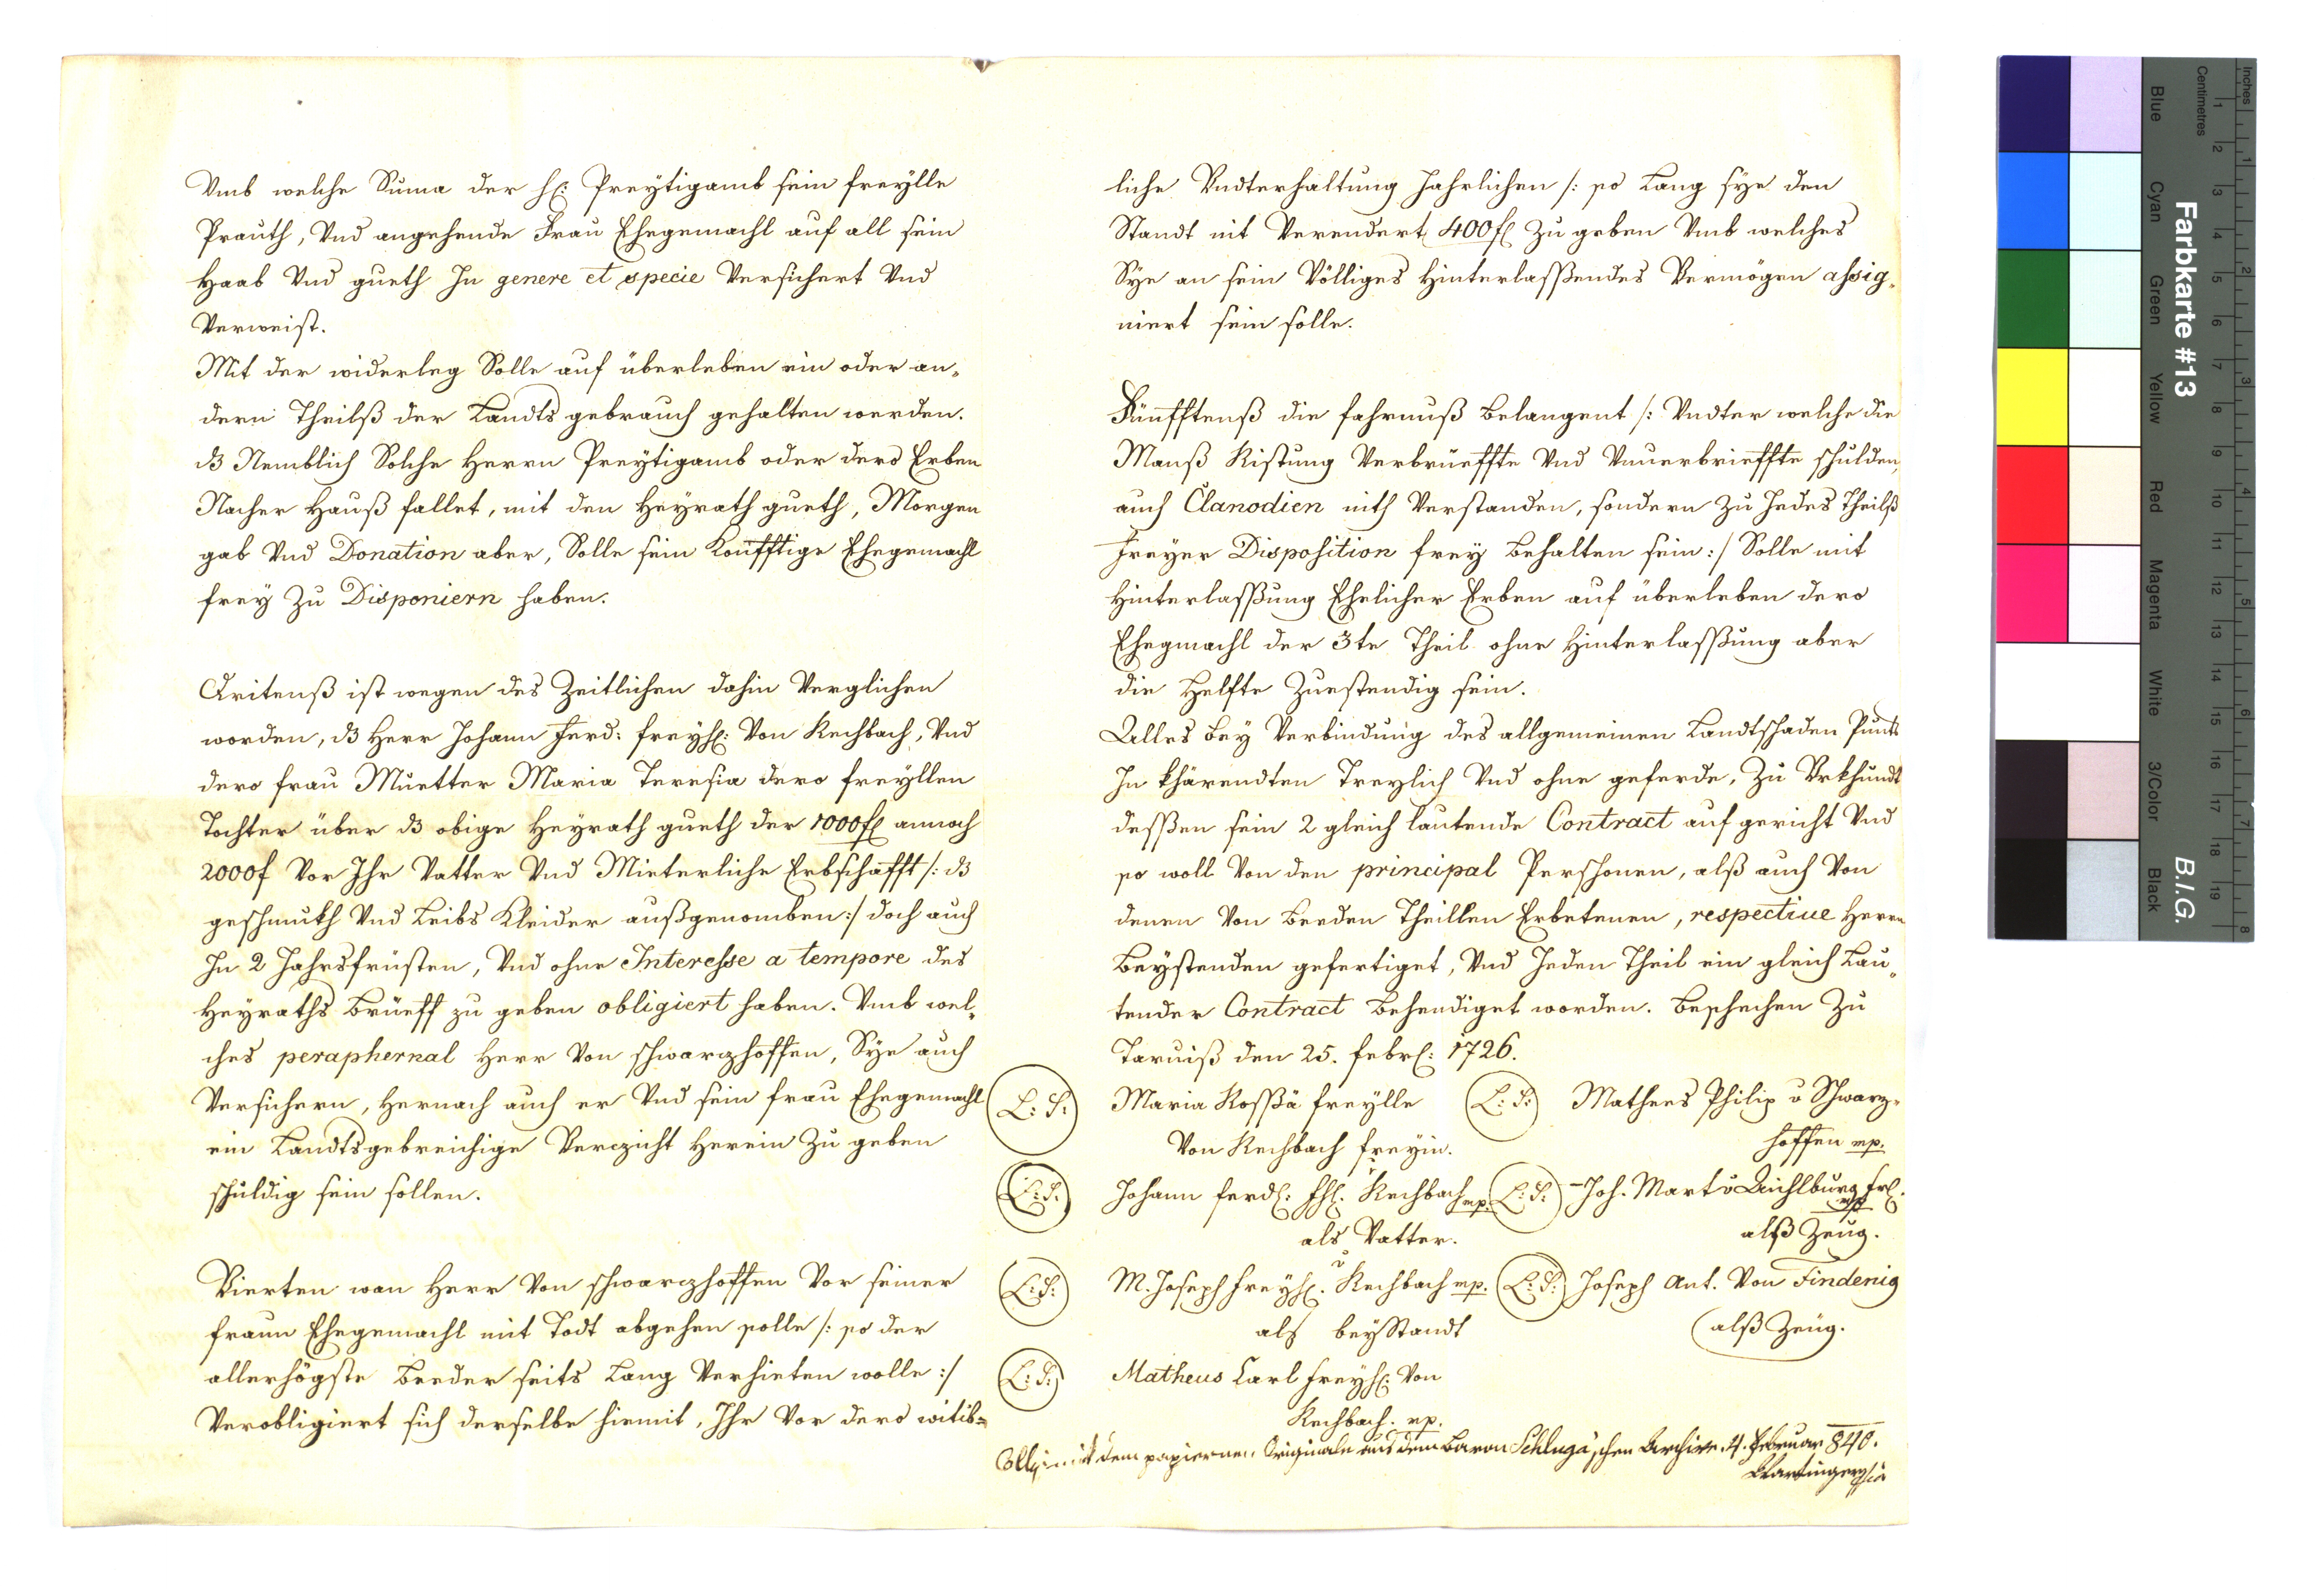 Vmb welche Suma der H: Preytigamb sein freylle
Prauth, Vnd angehende Frau Ehegemachl auf all sein
Haab Vnd gueth In genere et specie Versichert Vnd
Verweist.
Mit der widerleg Solle auf überleben ein oder an„
dern Theilß der Landts gebrauch gehalten werden.
dß Nemblich Solche Herrn Preytigamb oder dero Erben
Nacher Hauß fallet, mit den Heyrath gueth, Morgen
gab Vnd Donation aber, Solle sein Konfftige Ehegemachl
frey Zu Disponiern haben.
Dritenß ist wegen des Zeitlichen dahin Verglichen
worden, dß Herr Johann Ferd: freyh: Von Rechbach, Vnd
dero frau Muetter Maria Teresia dero freyllen
Tochter über dß obige Heyrath gueth der 1000 fl annoch
2000 f Vor Ihr Vatter Vnd Mieterliche Erbschafft /: dß
geschmukh Vnd Leibs Kleider außgenomben :/ doch auch
In 2 Jahrsfrüsten, Vnd ohne Interesse a tempore des
Heyraths Brüeff zu geben obligiert haben. Vmb wel„
ches peraphernal Herr Von schwarzhoffen, Sye auch
Versichern, Hernach auch er Vnd sein frau Ehegemachl
ein Landtsgebreichige Verzicht Herein Zu geben
schuldig sein sollen.
Vierten wan Herr Von schwarzhoffen Vor seiner
fraun Ehegemachl mit Todt abgehen solle /: so der
allerhögste Beeder seits Lang Verhieten wolle :/
Verobligiert sich derselbe hiemit, Ihr Vor dero witib=
liche Vndterhaltung Jahrlichen /: so Lang sye den
Standt nit Verendert 400 fl Zu geben Vmb welches
Sye an sein Völliges Hinterlasßendes Vermögen assig„
niert sein solle.
Fünfftenß die fahrnuß Belangent /: Vndter welche die
Manß Ristung Verbrüeffte Vnd Vnuerbrieffte schulden,
auch Clanodien nith Verstanden, sondern Zu Jedes Theilß
Freyer Disposition frey Behalten sein :/ Solle mit
Hinterlasßung Ehelicher Erben auf überleben dero
Ehegmachl der 3te Theil ohne Hinterlasßung aber
die Helfte Zuestendig sein.
Alles Bey Verbindung des allgemeinen Landtschaden Punts
In Khärendten Treylich Vnd ohne geferde, Zu Vrkhundt
desßen sein 2 gleich lautende Contract auf gericht Vnd
so woll Von den principal Perschonen, alß auch Von
denen Von Beeden Theillen Erbetenen, respective Herrn
Beystenden gefertiget, Vnd Jeden Theil ein gleich Lau„
tender Contract Behendiget worden. Beschechen Zu
Taruiß den 25. febrl: 1726.
L: S: Maria Rosßä freylle L: S: Mathees Philip v Schwarz„
Von Rechbach freyin. hoffen mp.
L: S: Johann ferdl: fhl. v Rechbach mp. L: S: Joh. Mart v Aichlburg frl.
mp
als Vatter. alß Zeug.
L: S: M. Joseph freyh. v Rechbach mp. L: S: Joseph Ant. Von Findenig
als beyStandt alß Zeug.
L: S: Matheus Carl freyh: Von
Rechbach. mp.
mit dem papiernen Originale aus dem Baron Schluga'schen Archive. 4. Februar 840.